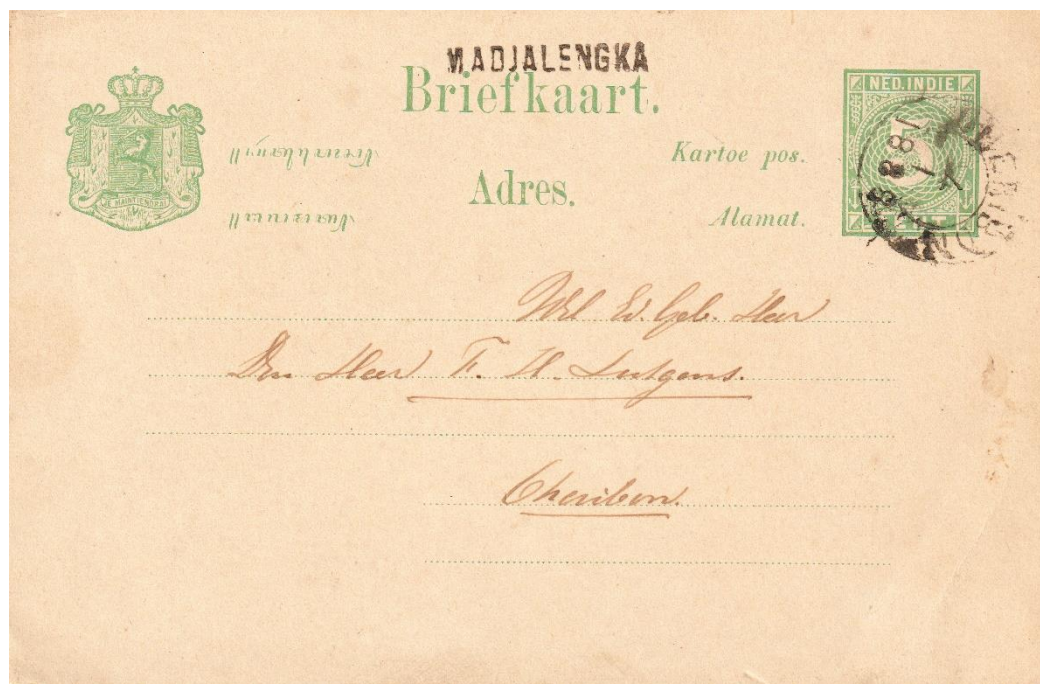 MADJALENGKA
Briefkaart.
Kartoe pos.
Adres.
Alamat.
NED. INDIE
5
CENT
JE MAINTIENDRAI
Wel Ed. Geb. Heer
Den Heer F. H. Lutgens.
Cheribon.